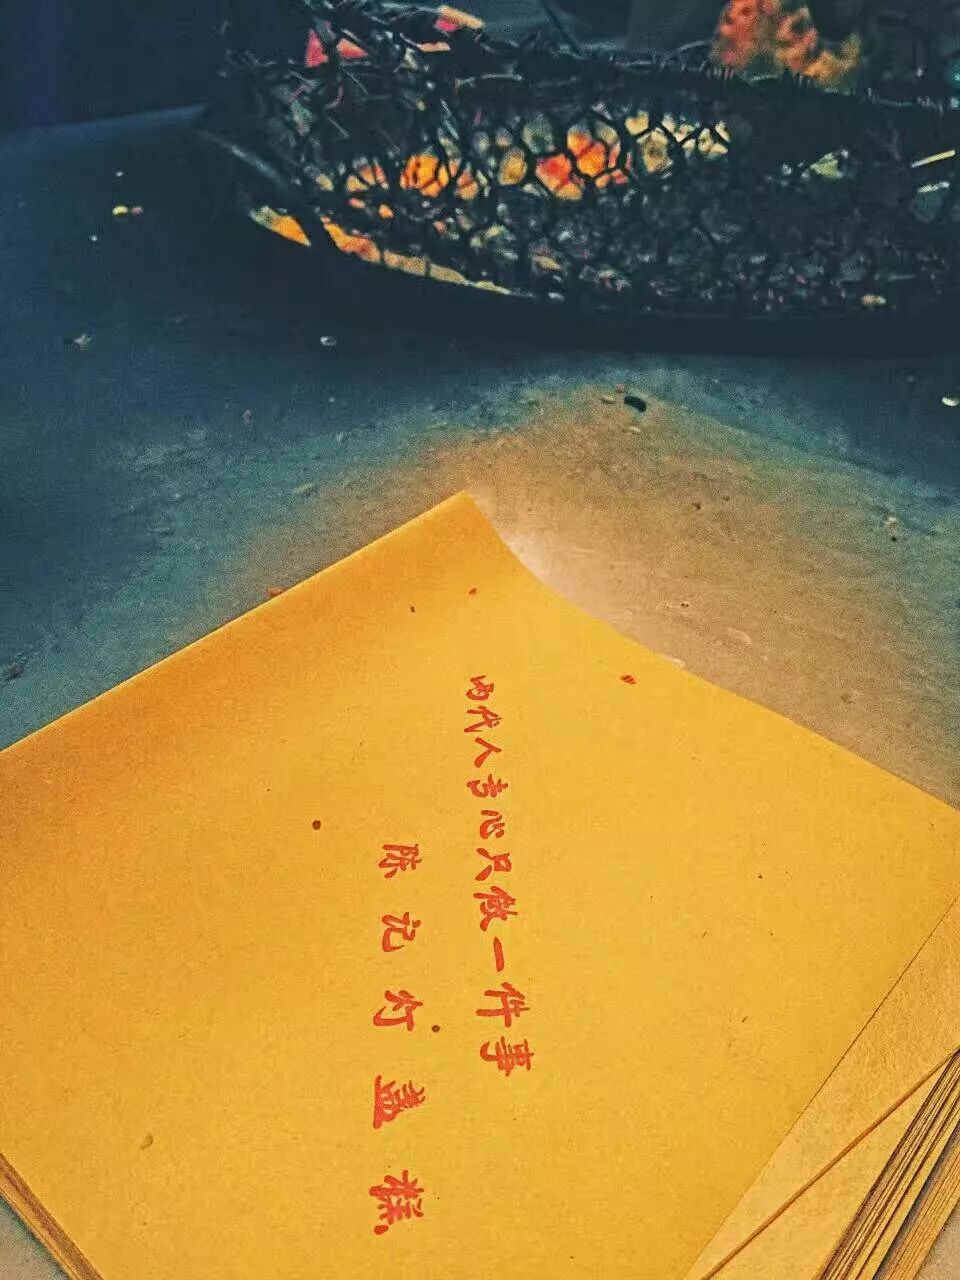 两代人专心只做一件事
陈记灯盏糕